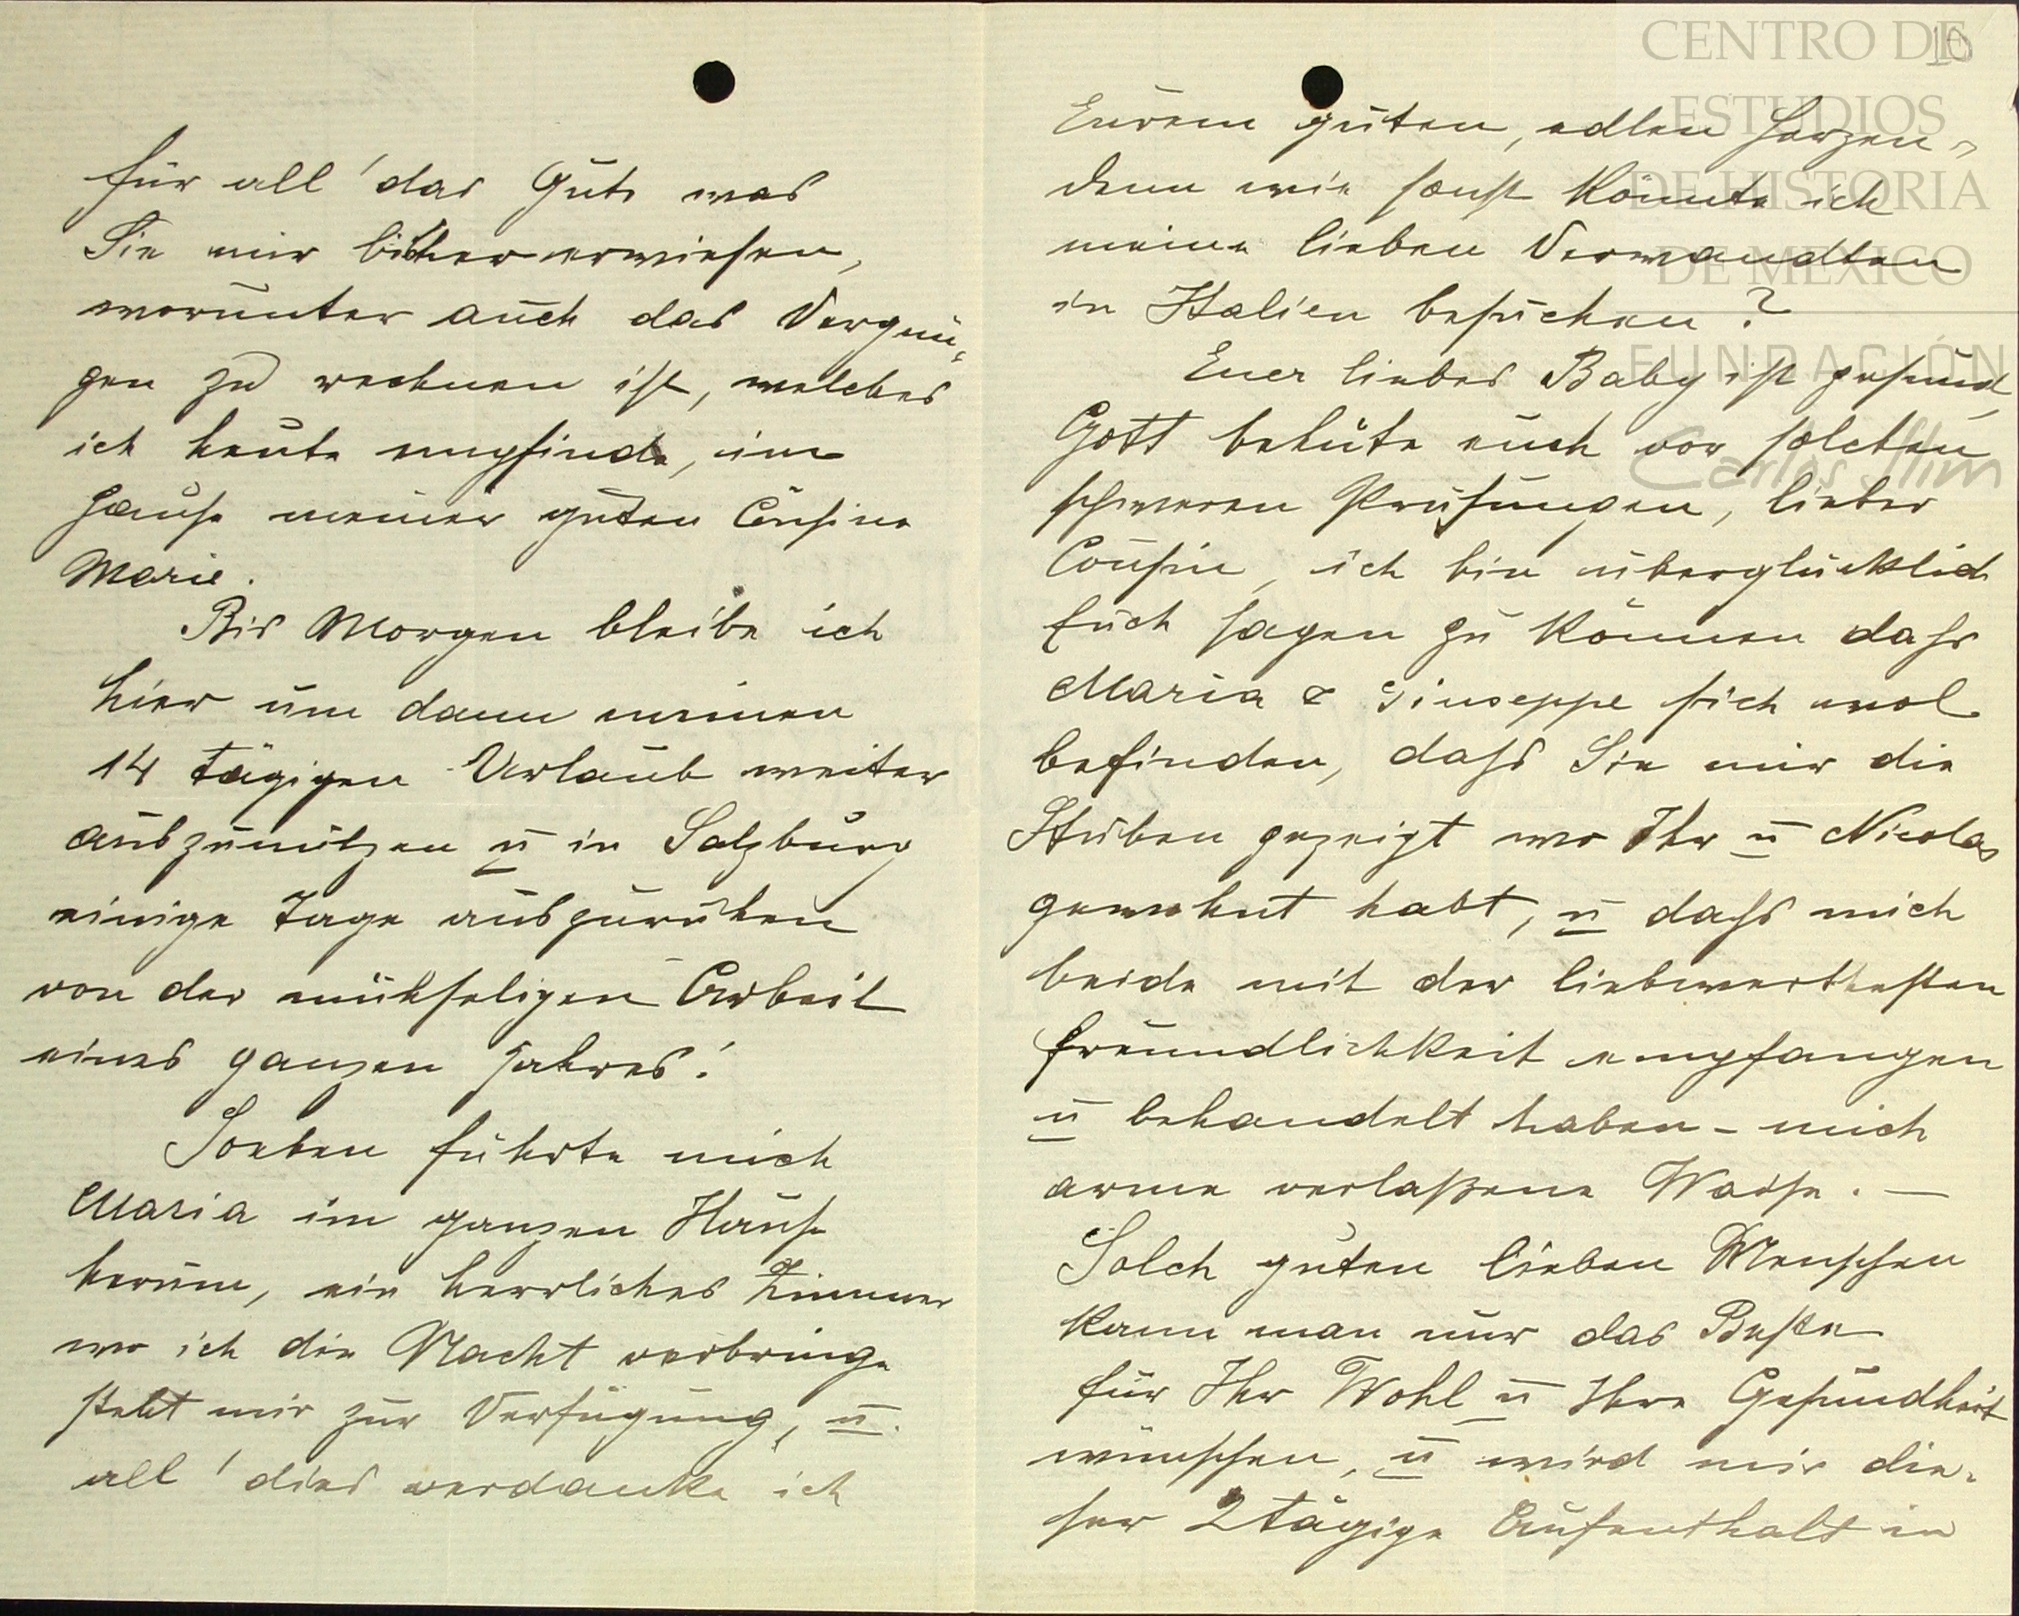 für all' das Gute was
Sie mir bisher erwiesen,
worunter auch das Vergnü-
gen zu rechnen ist, welches
ich heute empfinde, im
Hause meiner guten Cousine
Marie.
Bis Morgen bleibe ich
hier um dann meinen
14 tägigen Urlaub weiter
auszunützen u in Salzburg
einige Tage auszuruhen
von der mühseligen Arbeit
eines ganzen Jahres!
Soeben führte mich
Maria im ganzen Hause
herum, ein herrliches Zimmer
wo ich die Nacht verbringe
steht mir zur Verfügung, u.
all' dies verdanke ich
10
Eurem guten, edlen Herzen,
denn wie sonst könnte ich
meine lieben Verwandten
in Italien besuchen?
Euer liebes Baby ist gesund,
Gott behüte euch vor solchen
schweren Prüfungen, lieber
Cousin, ich bin überglücklich
Euch sagen zu können dass
Maria & Giuseppe sich wol
befinden, dass Sie mir die
Stuben gezeigt wo Ihr u Nicolas
gewohnt habt, u dass mich
beide mit der liebwerthesten
Freundlichkeit empfangen
u behandelt haben – mich
arme verlaßene Waise. —
Solch guten lieben Menschen
kann man nur das Beste
für Ihr Wohl u Ihre Gesundheit
wünschen, u wird mir die-
ser 2tägige Aufenthalt in
CENTRO DE
ESTUDIOS
DE HISTORIA
DE MEXICO
FUNDACIÓN
Carlos Slim